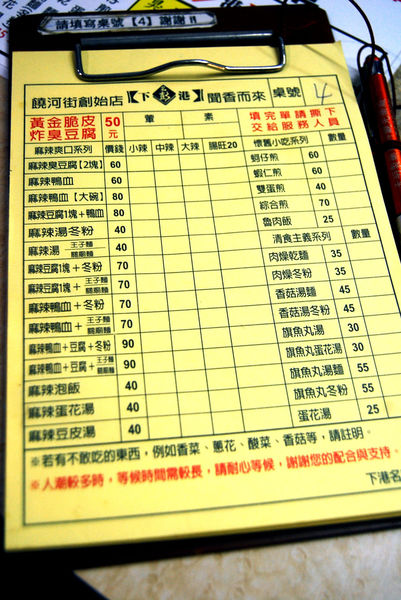 請填寫桌號【4】謝謝!!
饒河街創始店【下港】聞香而來 桌號 4
黃金脆皮 50 葷 素 填完單請撕下
炸臭豆腐 元 交給服務人員
麻辣爽口系列 價錢 小辣 中辣 大辣 腸旺20 懷舊小吃系列 數量
麻辣臭豆腐【2塊】 60 蚵仔煎 60
麻辣鴨血 60 蝦仁煎 60
麻辣鴨血【大碗】 80 雙蛋煎 40
麻辣豆腐1塊+鴨血 80 綜合煎 70
麻辣湯冬粉 40 魯肉飯 25
麻辣湯 王子麵 關廟麵 40 清食主義系列 數量
麻辣豆腐1塊+冬粉 70 肉燥乾麵 35
麻辣豆腐1塊+ 王子麵 關廟麵 70 肉燥冬粉 35
麻辣鴨血+冬粉 70 香菇湯麵 45
麻辣鴨血+ 王子麵 關廟麵 70 香菇湯冬粉 45
麻辣鴨血+豆腐+冬粉 90 旗魚丸湯 30
麻辣鴨血+豆腐+ 王子麵 關廟麵 90 旗魚丸蛋花湯 30
麻辣泡飯 40 旗魚丸湯麵 55
麻辣蛋花湯 40 旗魚丸冬粉 55
麻辣豆皮湯 40 蛋花湯 25
※若有不敢吃的東西,例如香菜、蔥花、酸菜、香菇等,請註明。
※人潮較多時,等候時間需較長,請耐心等候,謝謝您的配合與支持。
下港名